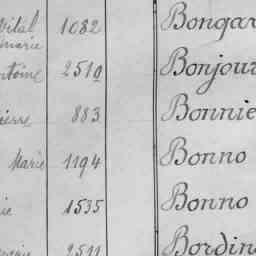 Vital 1082 Bongar
marie
ntoine 2510 Bonjour
ierre 883 Bonnie
Marie 1194 Bonno
ie 1535 Bonno
2511 Bordin